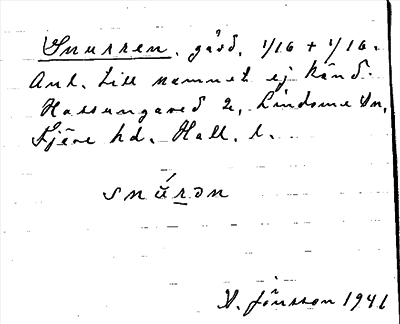 Snurren, gård, 1/16 + 1/16.
Anl. till namnet ej känd.
Hassungared 2, Lindome sn,
Fjäre hd. Hall. l.
snúrən
A. Jönsson 1941